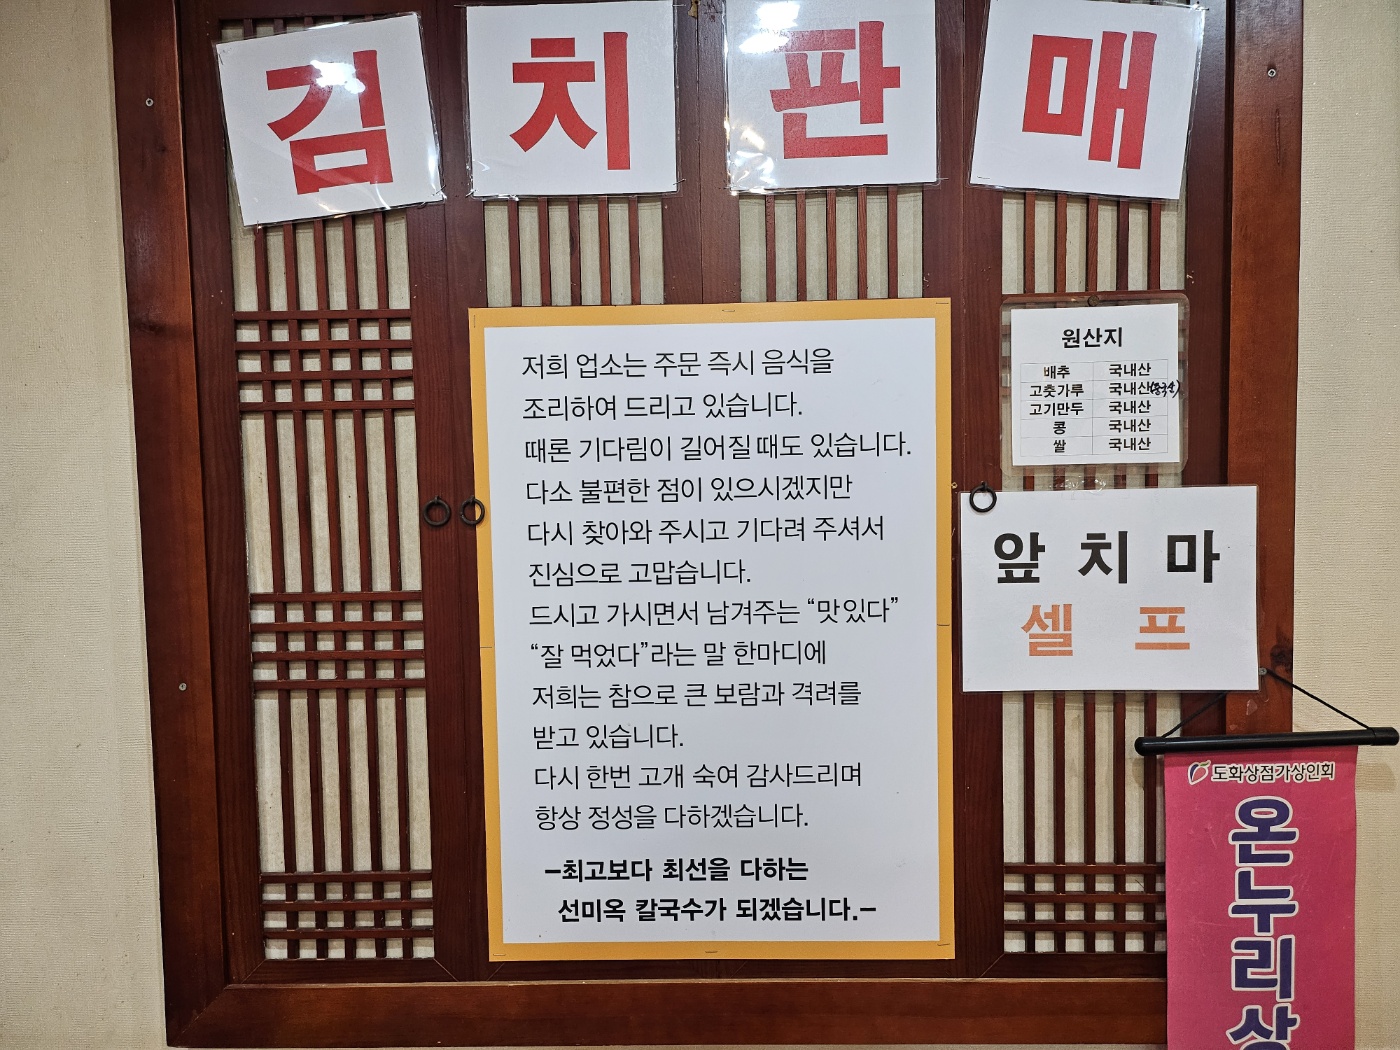 김치판매
저희 업소는 주문 즉시 음식을
조리하여 드리고 있습니다.
때론 기다림이 길어질 때도 있습니다.
다소 불편한 점이 있으시겠지만
다시 찾아와 주시고 기다려 주셔서
진심으로 고맙습니다.
드시고 가시면서 남겨주는 “맛있다”
“잘 먹었다”라는 말 한마디에
저희는 참으로 큰 보람과 격려를
받고 있습니다.
다시 한번 고개 숙여 감사드리며
항상 정성을 다하겠습니다.
-최고보다 최선을 다하는
선미옥 칼국수가 되겠습니다.-
원산지
배추 국내산
고춧가루 국내산(중국산)
고기만두 국내산
콩 국내산
쌀 국내산
앞치마
셀프
도화상점가상인회
온누리상